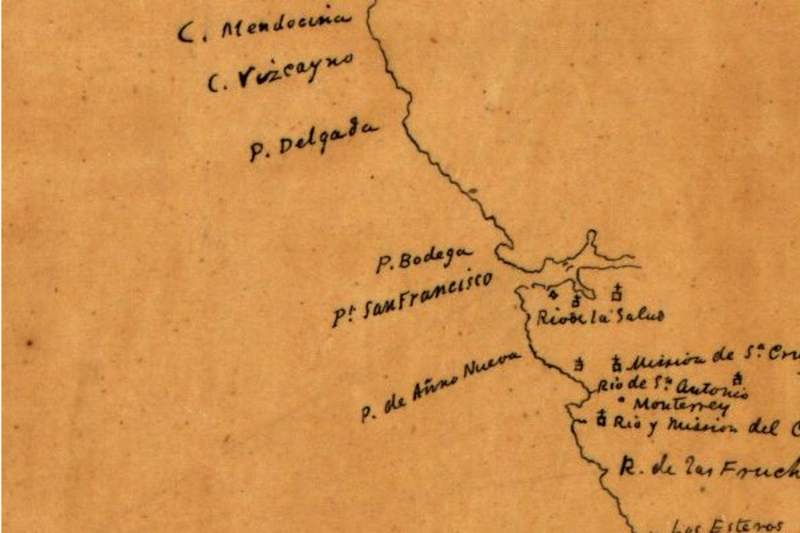 C. Mendocina
C. Vizcayno
P. Delgada
P. Bodega
Pt. San Francisco
Rio de la Salud
P. de Añno Nueva
Mission de Sa. Cru
Rio de Sn. Antonio
Monterrey
Rio y Mission del C
R. de las Fruch
Los Esteros